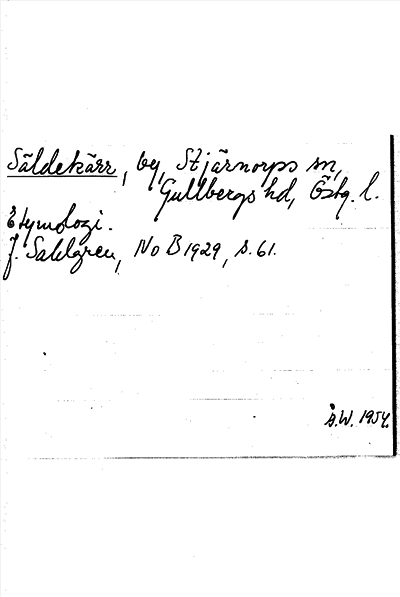 Säldekärr, by, Stjärnorps sn,
Gullbergs hd, Östg. l.
Etymologi.
J. Sahlgren, NoB 1929, s. 61.
Å.W. 1954.